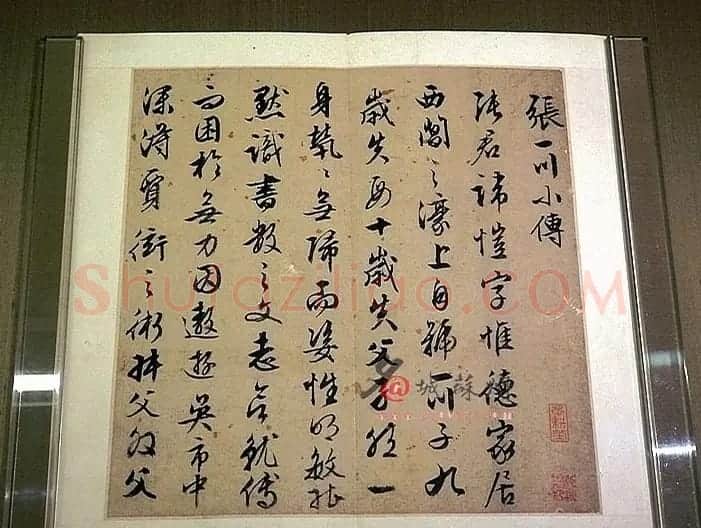 張一川小傳
張君諱愷字惟德家居
西閶之濠上自號一川子九
歲失母十歲失父孑然一
身煢〻無歸而姿性明敏能
默識書數之文志欲就傅
而困於無力因遨遊吳市中
深得賈衒之術父父
Shufaziliao.COM
@城蘇